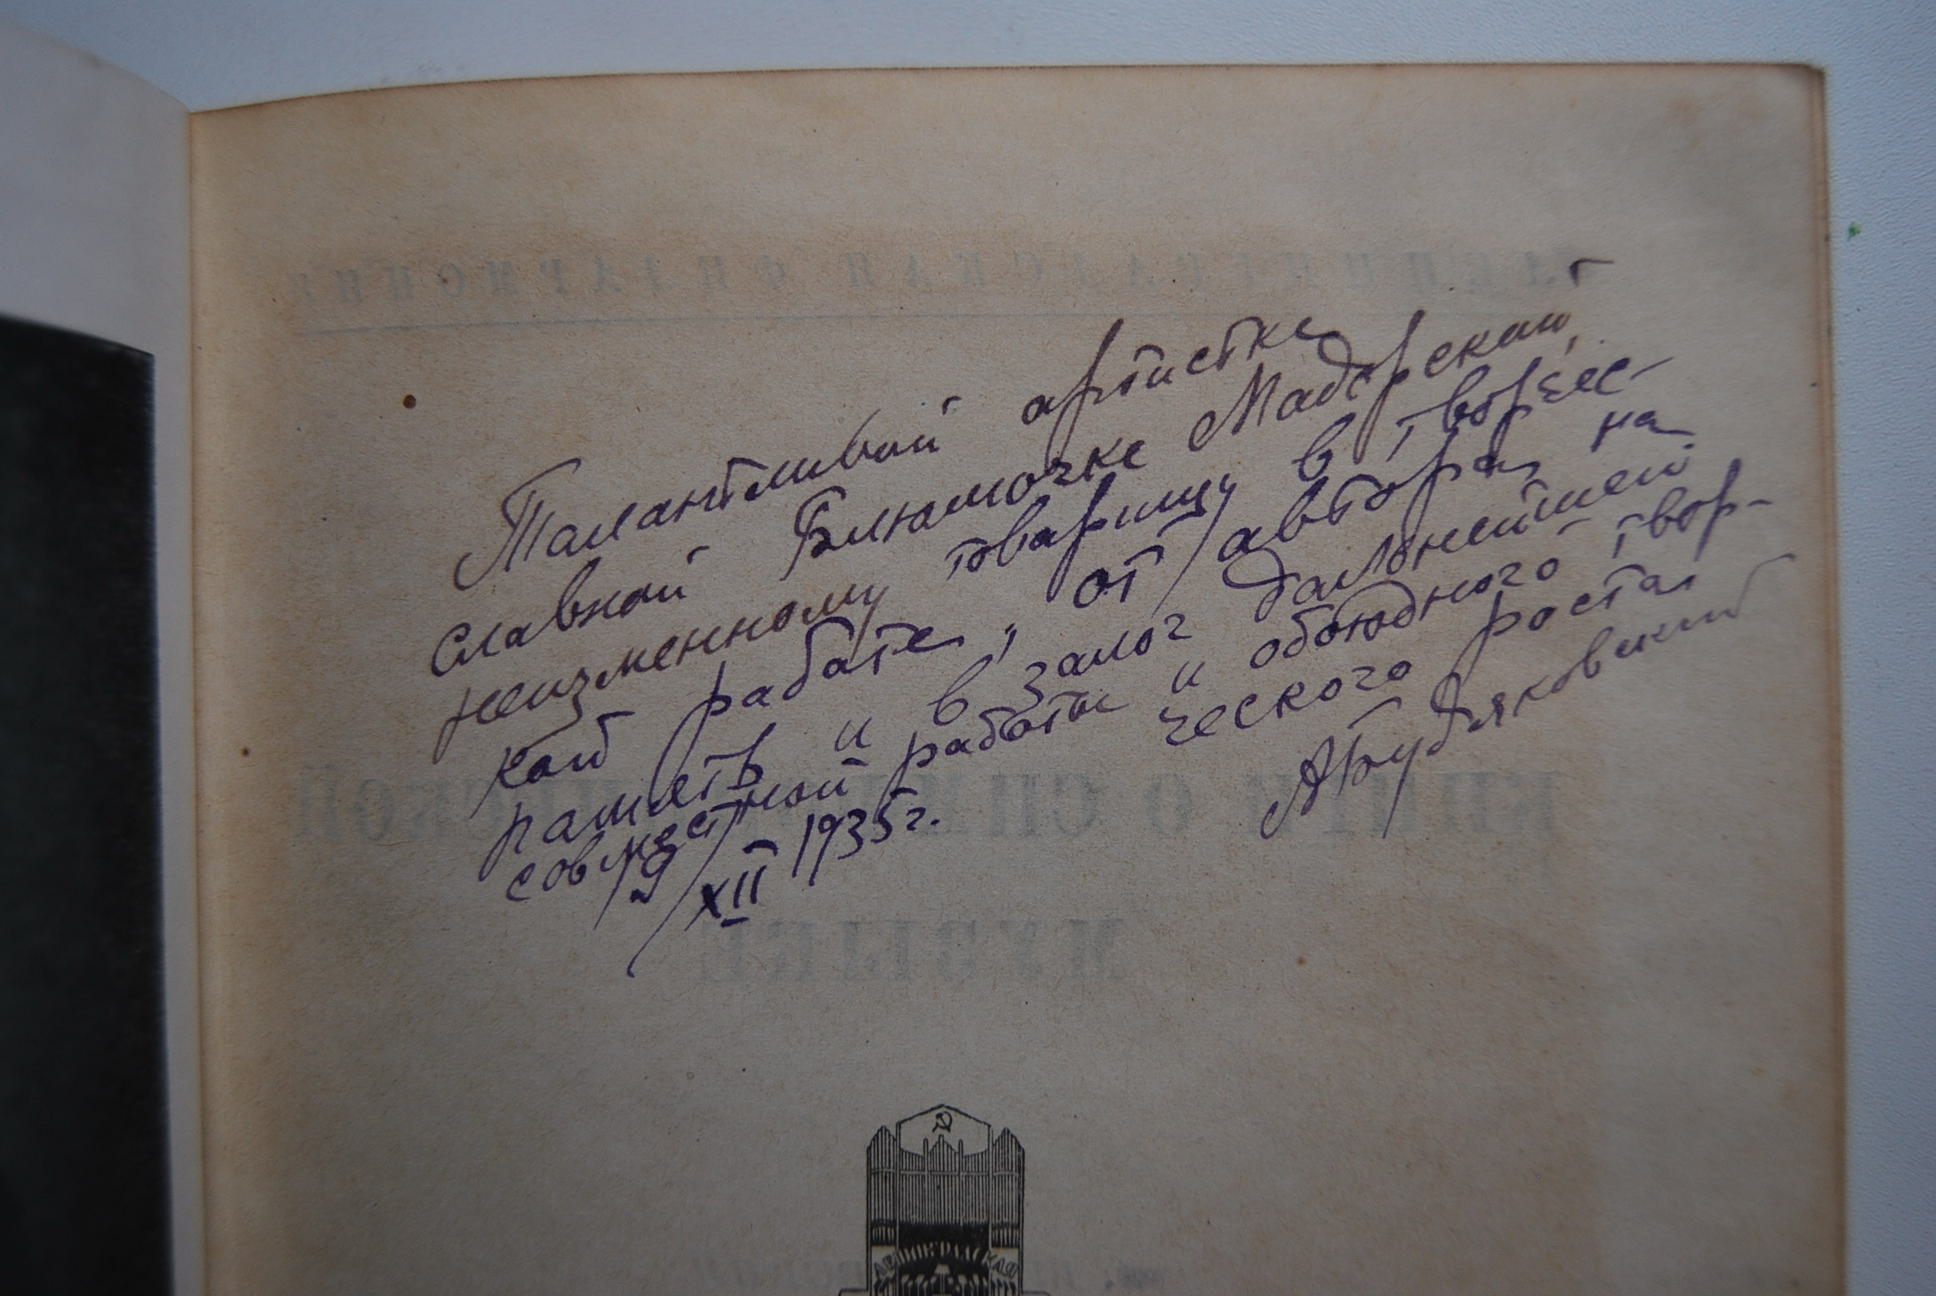 ЛЕНИНГРАДСКАЯ ФИЛАРМОНИЯ
Талантливой артистке
славной Блюмочке Мадорской,
неизменному товарищу в творчес-
кой работе, от автора на
память и в залог дальнейшей
совместной работы и обоюдного твор-
ческого роста
АБудяковский
19/XII 1935 г.
КНИГИ О СИМФОНИЧЕСКОЙ
МУЗЫКЕ
ЛЕНИНГРАДСКАЯ